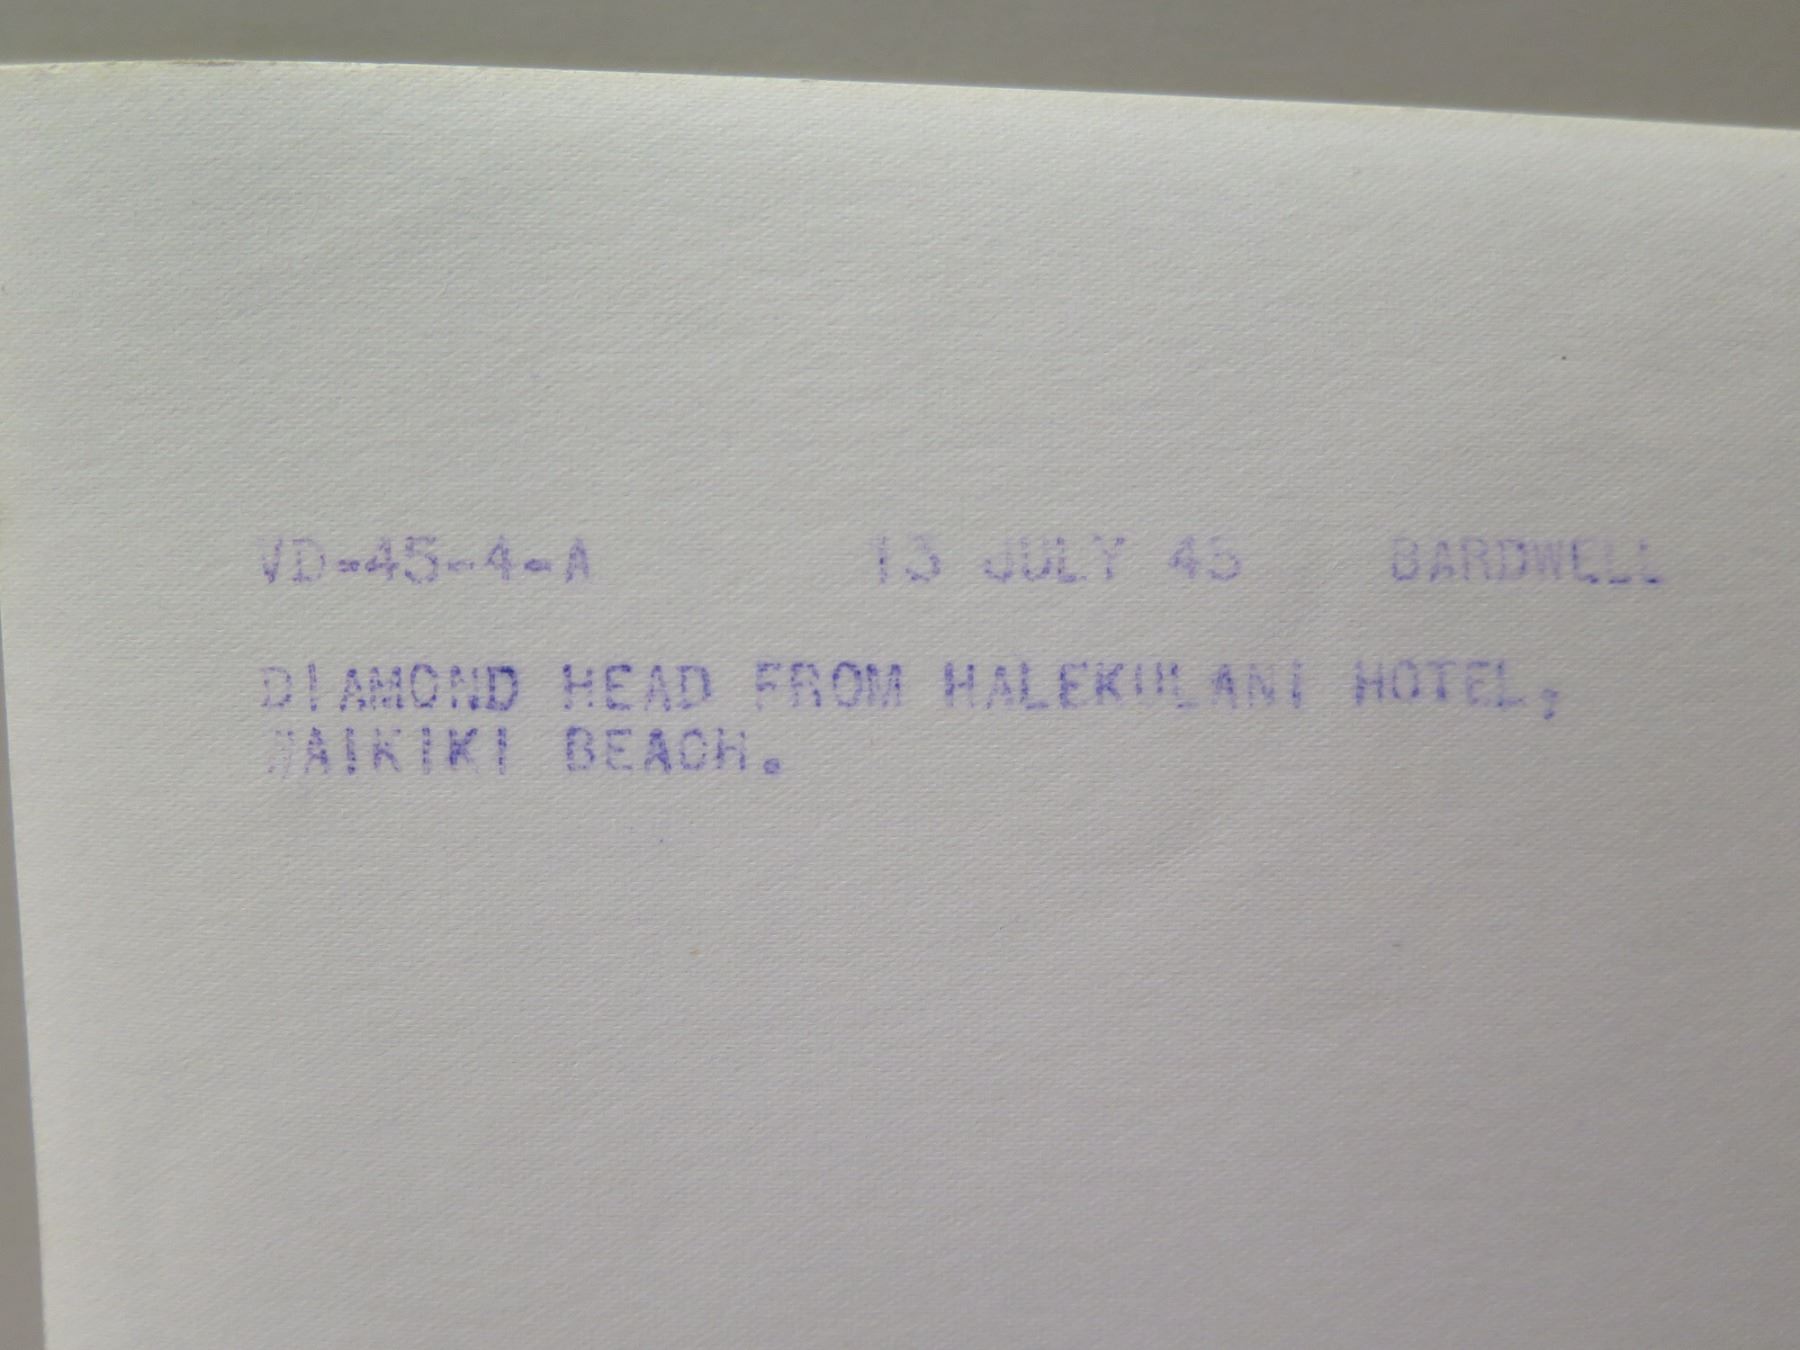 VD-45-4-A 13 JULY 45 BARDWELL
DIAMOND HEAD FROM HALEKULANI HOTEL,
WAIKIKI BEACH.